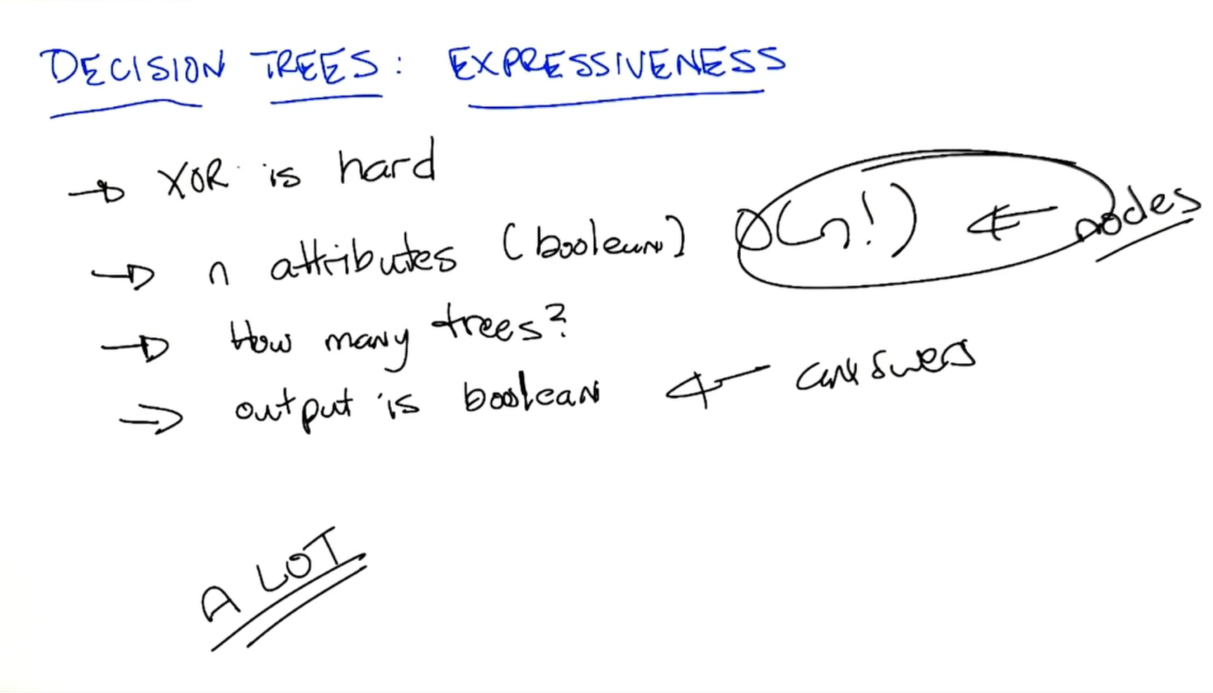 DECISION TREES: EXPRESSIVENESS
→ XOR is hard
→ n attributes (boolean) O(n!) ← nodes
→ How many trees?
→ output is boolean ← answers
A LOT